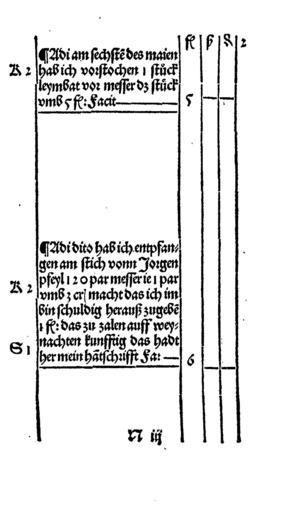 fl ß ₰ 2
¶Adi am sechstē des maien
K 2 hab ich vorstochen 1 stück
leymbat vor messer dz stück
vmb 5 fl: Facit 5
¶Adi dito hab ich entpfan-
gen am stich vonn Jorgen
pfeyl 120 par messer ie 1 par
K 2 vmb 3 cr macht das ich im
bin schuldig herauß zugebē
1 fl: das zu zalen auff wey-
S 1 nachten kunfftig das hadt
her mein hātschrifft Fa: 6
N iij